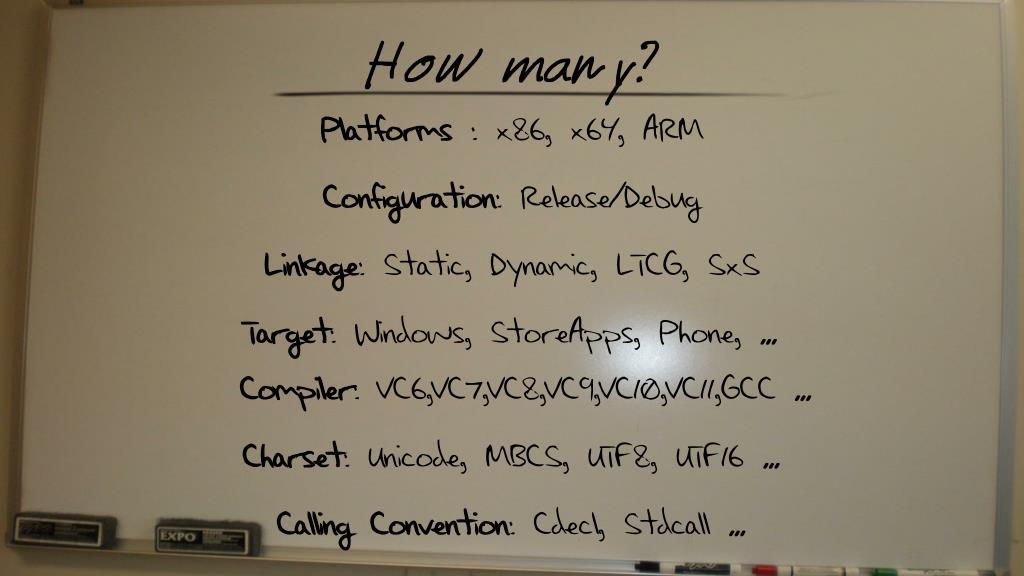 How many?
Platforms : x86, x64, ARM
Configuration: Release/Debug
Linkage: Static, Dynamic, LTCG, SxS
Target: Windows, StoreApps, Phone, ...
Compiler: VC6,VC7,VC8,VC9,VC10,VC11,GCC ...
Charset: Unicode, MBCS, UTF8, UTF16 ...
Calling Convention: Cdecl, Stdcall ...
EXPO